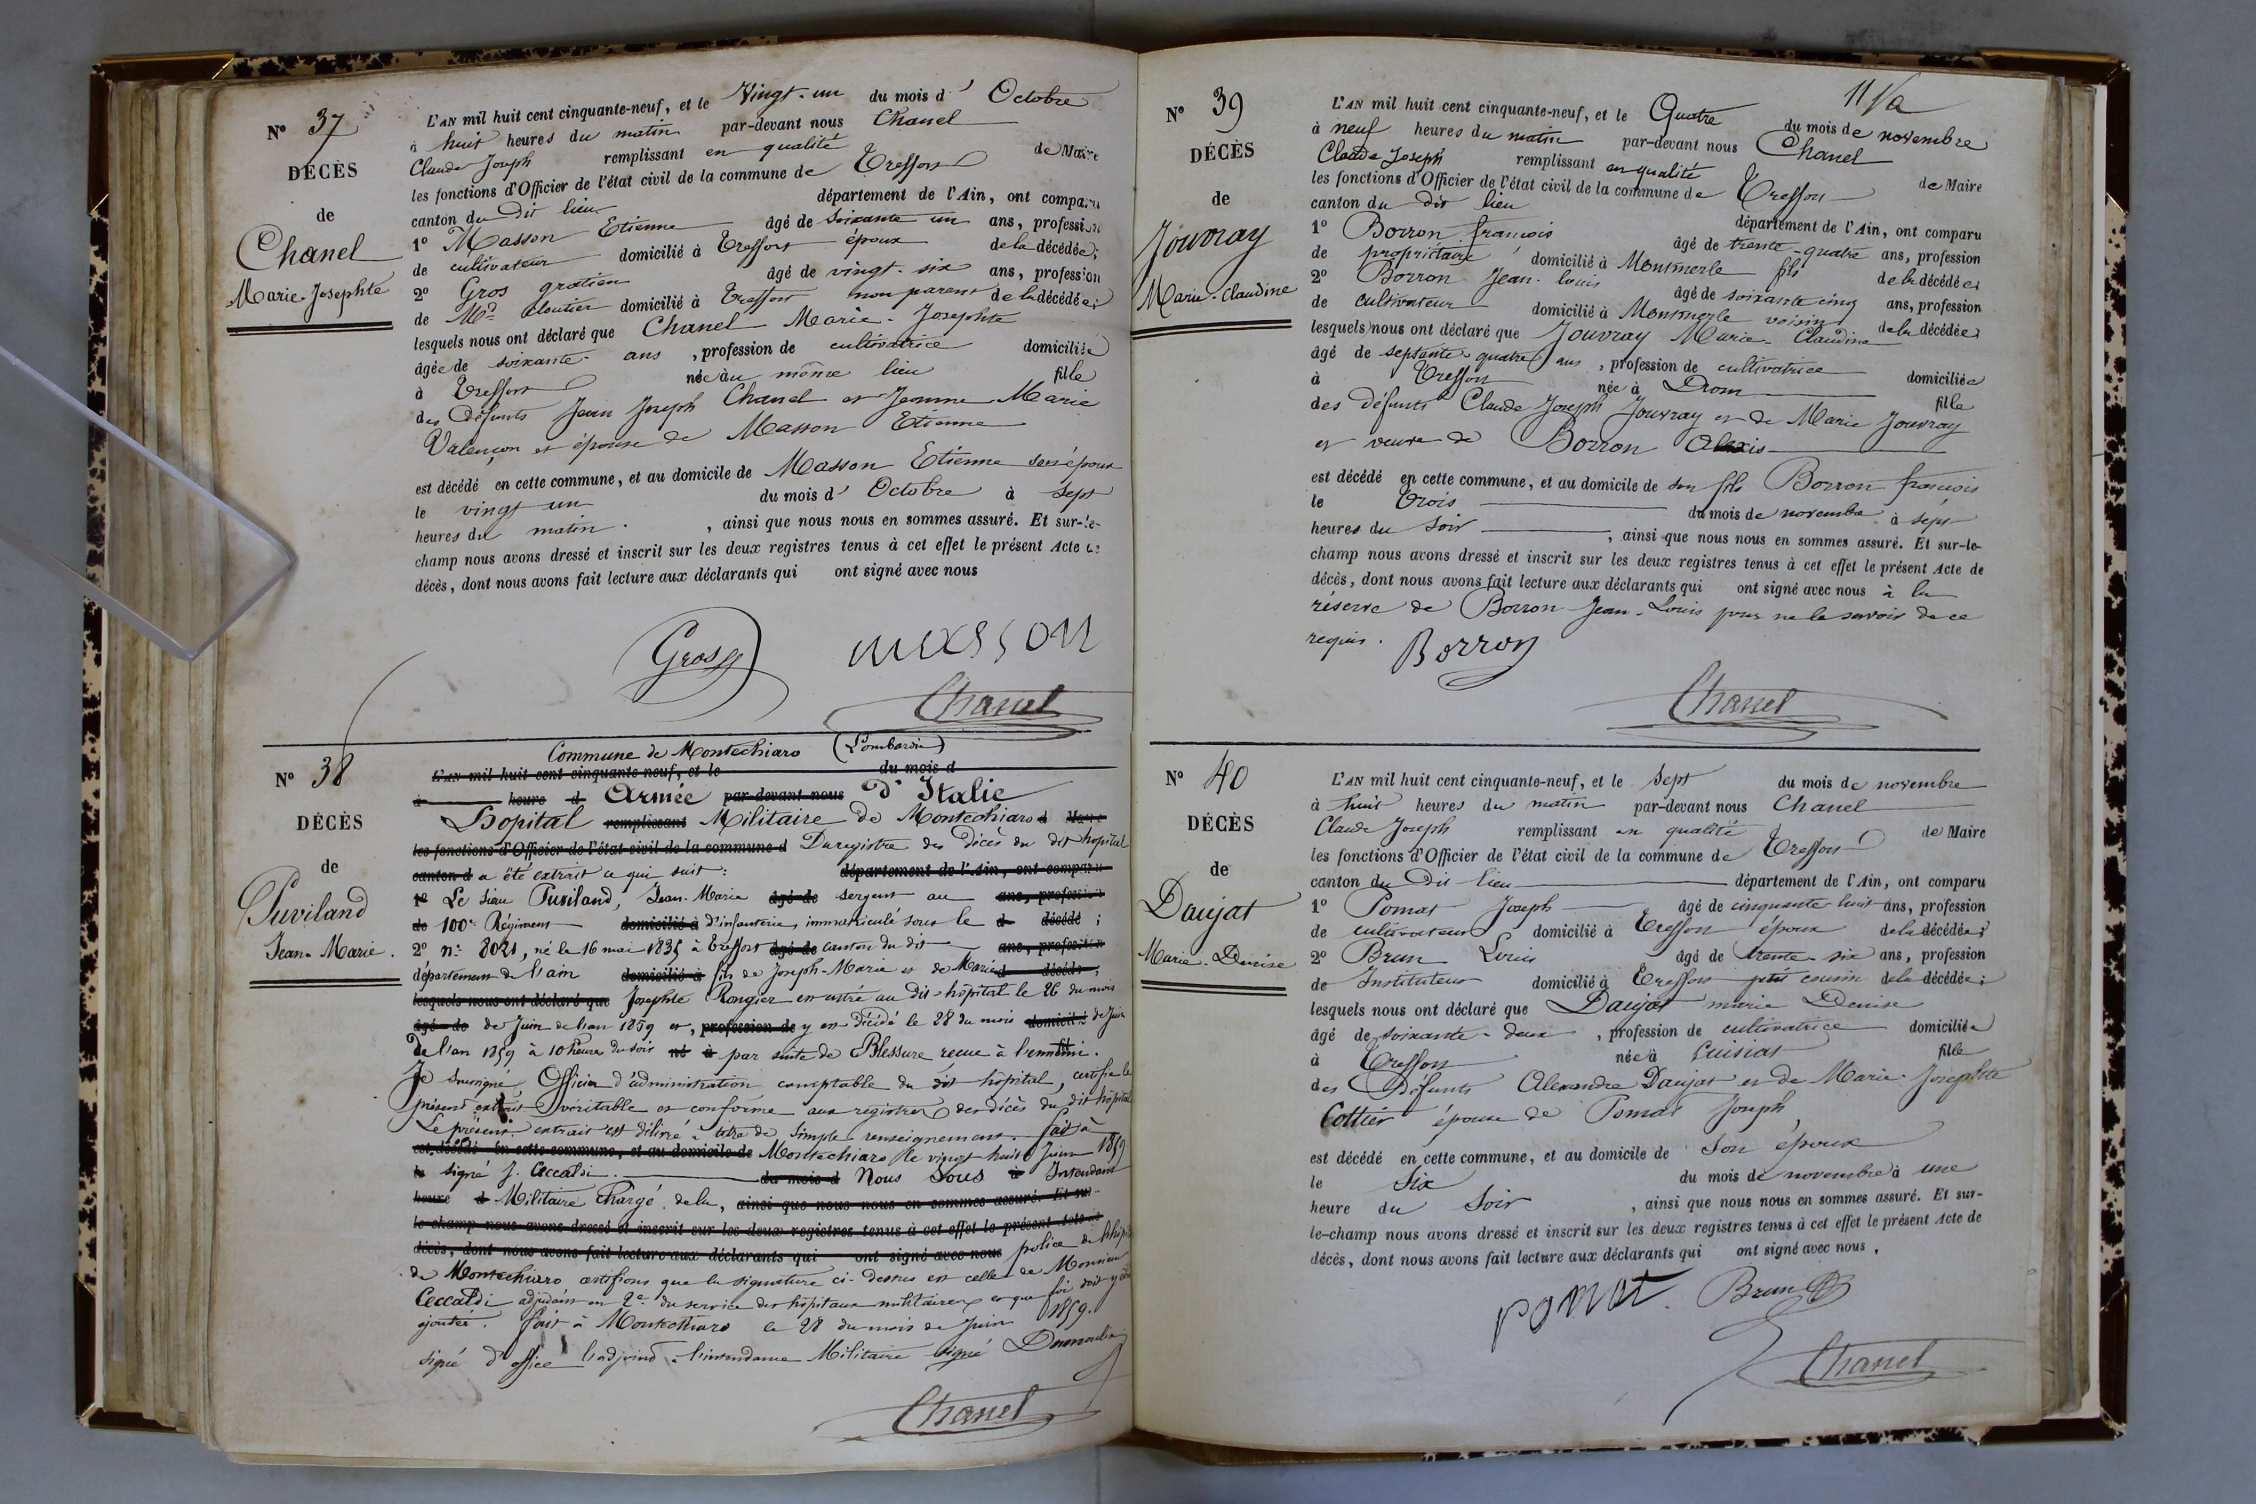 N° 37
DÉCÈS
de
Chanel
Marie-Josephte
L'AN mil huit cent cinquante-neuf, et le Vingt-un du mois d' Octobre
à huit heures du matin par-devant nous Chanel
Claude Joseph remplissant en qualité de Maire
les fonctions d'Officier de l'état civil de la commune de Treffort
canton du dit lieu département de l'Ain, ont comparu
1° Masson Etienne âgé de soixante un ans, profession
de cultivateur domicilié à Treffort époux de la décédée;
2° Gros gratien âgé de vingt-six ans, profession
de Md Cloutier domicilié à Treffort non parent de la décédée;
lesquels nous ont déclaré que Chanel Marie-Josephte
âgée de soixante ans , profession de cultivatrice domiciliée
à Treffort née au même lieu fille
des Défunts Jean Joseph Chanel et Jeanne Marie
Valençon et épouse de Masson Etienne
est décédé en cette commune, et au domicile de Masson Etienne son époux
le vingt un du mois d' Octobre à sept
heures du matin. , ainsi que nous nous en sommes assuré. Et sur-le-
champ nous avons dressé et inscrit sur les deux registres tenus à cet effet le présent Acte de
décès, dont nous avons fait lecture aux déclarants qui ont signé avec nous
Gros g masson
Chanel
N° 38
DÉCÈS
de
Puviland
Jean-Marie.
Commune de Montechiaro (Lombardie)
L'AN mil huit cent cinquante-neuf, et le du mois d
à heure d Armée par-devant nous d'Italie
Hopital remplissant Militaire de Montechiaro d Maire
les fonctions d'Officier de l'état civil de la commune d Du registre des Décès du dit hopital
canton d a été extrait ce qui suit: département de l'Ain, ont comparu
1° Le Sieur Puviland, Jean-Marie âgé de sergent au ans, profession
de 100e Régiment domicilié à d'infanterie immatriculé sous le d décédé ;
2° n° 8021, né le 16 mai 1835 à Treffort âgé de canton du dit ans, profession
département de l'ain domicilié à fils de Joseph-Marie et de Marie d décédé ;
lesquels nous ont déclaré que Josephte Rongier en entré au Dit hôpital le 26 du mois
âgé de de Juin de l'an 1859 et, profession de y est décédé le 28 du mois domicilié de Juin
de l'an 1859 à 10 heures du soir né à par suite de Blessure reçue à l'ennemi.
Je soussigné, Officier d'administration comptable du dit hôpital, certifie le
présent extrait véritable et conforme aux registres des décès du dit hôpital
Le présent extrait est délivré à titre de simple renseignement. fait à
est décédé en cette commune, et au domicile de Montechiaro le vingt huit Juin 1859
le signé J. Ceccaldi du mois d Nous Sous à Intendant
heure d Militaire Chargé de la, ainsi que nous nous en sommes assuré. Et sur-
le-champ nous avons dressé et inscrit sur les deux registres tenus à cet effet le présent Acte de
décès, dont nous avons fait lecture aux déclarants qui ont signé avec nous police de l'hôpital
de Montechiaro certifions que la signature ci-dessus est celle de Monsieur
Ceccaldi adjudant en 2e du service des hôpitaux militaires et que foi doit y être
ajoutée. fait à Montechiaro le 28 du mois de Juin 1859.
signé d'office l'adjoint à l'intendance Militaire signé Dumoulin
Chanel
11 Va
N° 39
DÉCÈS
de
Jouvray
Marie-Claudine
L'AN mil huit cent cinquante-neuf, et le Quatre du mois de novembre
à neuf heures du matin par-devant nous Chanel
Claude Joseph remplissant en qualité de Maire
les fonctions d'Officier de l'état civil de la commune de Treffort
canton du dit lieu département de l'Ain, ont comparu
1° Borron francois âgé de trente-quatre ans, profession
de propriétaire domicilié à Montmerle fils de la décédée;
2° Borron Jean-louis âgé de soixante cinq ans, profession
de cultivateur domicilié à Montmerle voisin de la décédée;
lesquels nous ont déclaré que Jouvray Marie-Claudine
âgé de septante-quatre ans , profession de cultivatrice domiciliée
à Treffort née à Drom fille
des défunts Claude Joseph Jouvray et de Marie Jouvray
et veuve de Borron Alexis
est décédé en cette commune, et au domicile de son fils Borron francois
le trois du mois de novembre à sept
heures du soir , ainsi que nous nous en sommes assuré. Et sur-le-
champ nous avons dressé et inscrit sur les deux registres tenus à cet effet le présent Acte de
décès, dont nous avons fait lecture aux déclarants qui ont signé avec nous à la
réserve de Borron Jean-Louis pour ne le savoir de ce
requis. Borron
Chanel
N° 40
DÉCÈS
de
Daujat
Marie-Denise
L'AN mil huit cent cinquante-neuf, et le sept du mois de novembre
à huit heures du matin par-devant nous Chanel
Claude Joseph remplissant en qualité de Maire
les fonctions d'Officier de l'état civil de la commune de Treffort
canton du Dit lieu département de l'Ain, ont comparu
1° Pomat Joseph âgé de cinquante huit ans, profession
de cultivateur domicilié à Treffort époux de la décédée;
2° Brun Louis âgé de trente-six ans, profession
de Instituteur domicilié à Treffort petit cousin de la décédée;
lesquels nous ont déclaré que Daujat marie Denise
âgé de soixante-deux , profession de cultivatrice domiciliée
à Treffort née à Cuisiat fille
des Défunts Alexandre Daujat et de Marie-Josephte
Cottier épouse de Pomat Joseph
est décédé en cette commune, et au domicile de son époux
le Six du mois de novembre à une
heure du Soir , ainsi que nous nous en sommes assuré. Et sur-
le-champ nous avons dressé et inscrit sur les deux registres tenus à cet effet le présent Acte de
décès, dont nous avons fait lecture aux déclarants qui ont signé avec nous.
pomat. Brun
Chanel